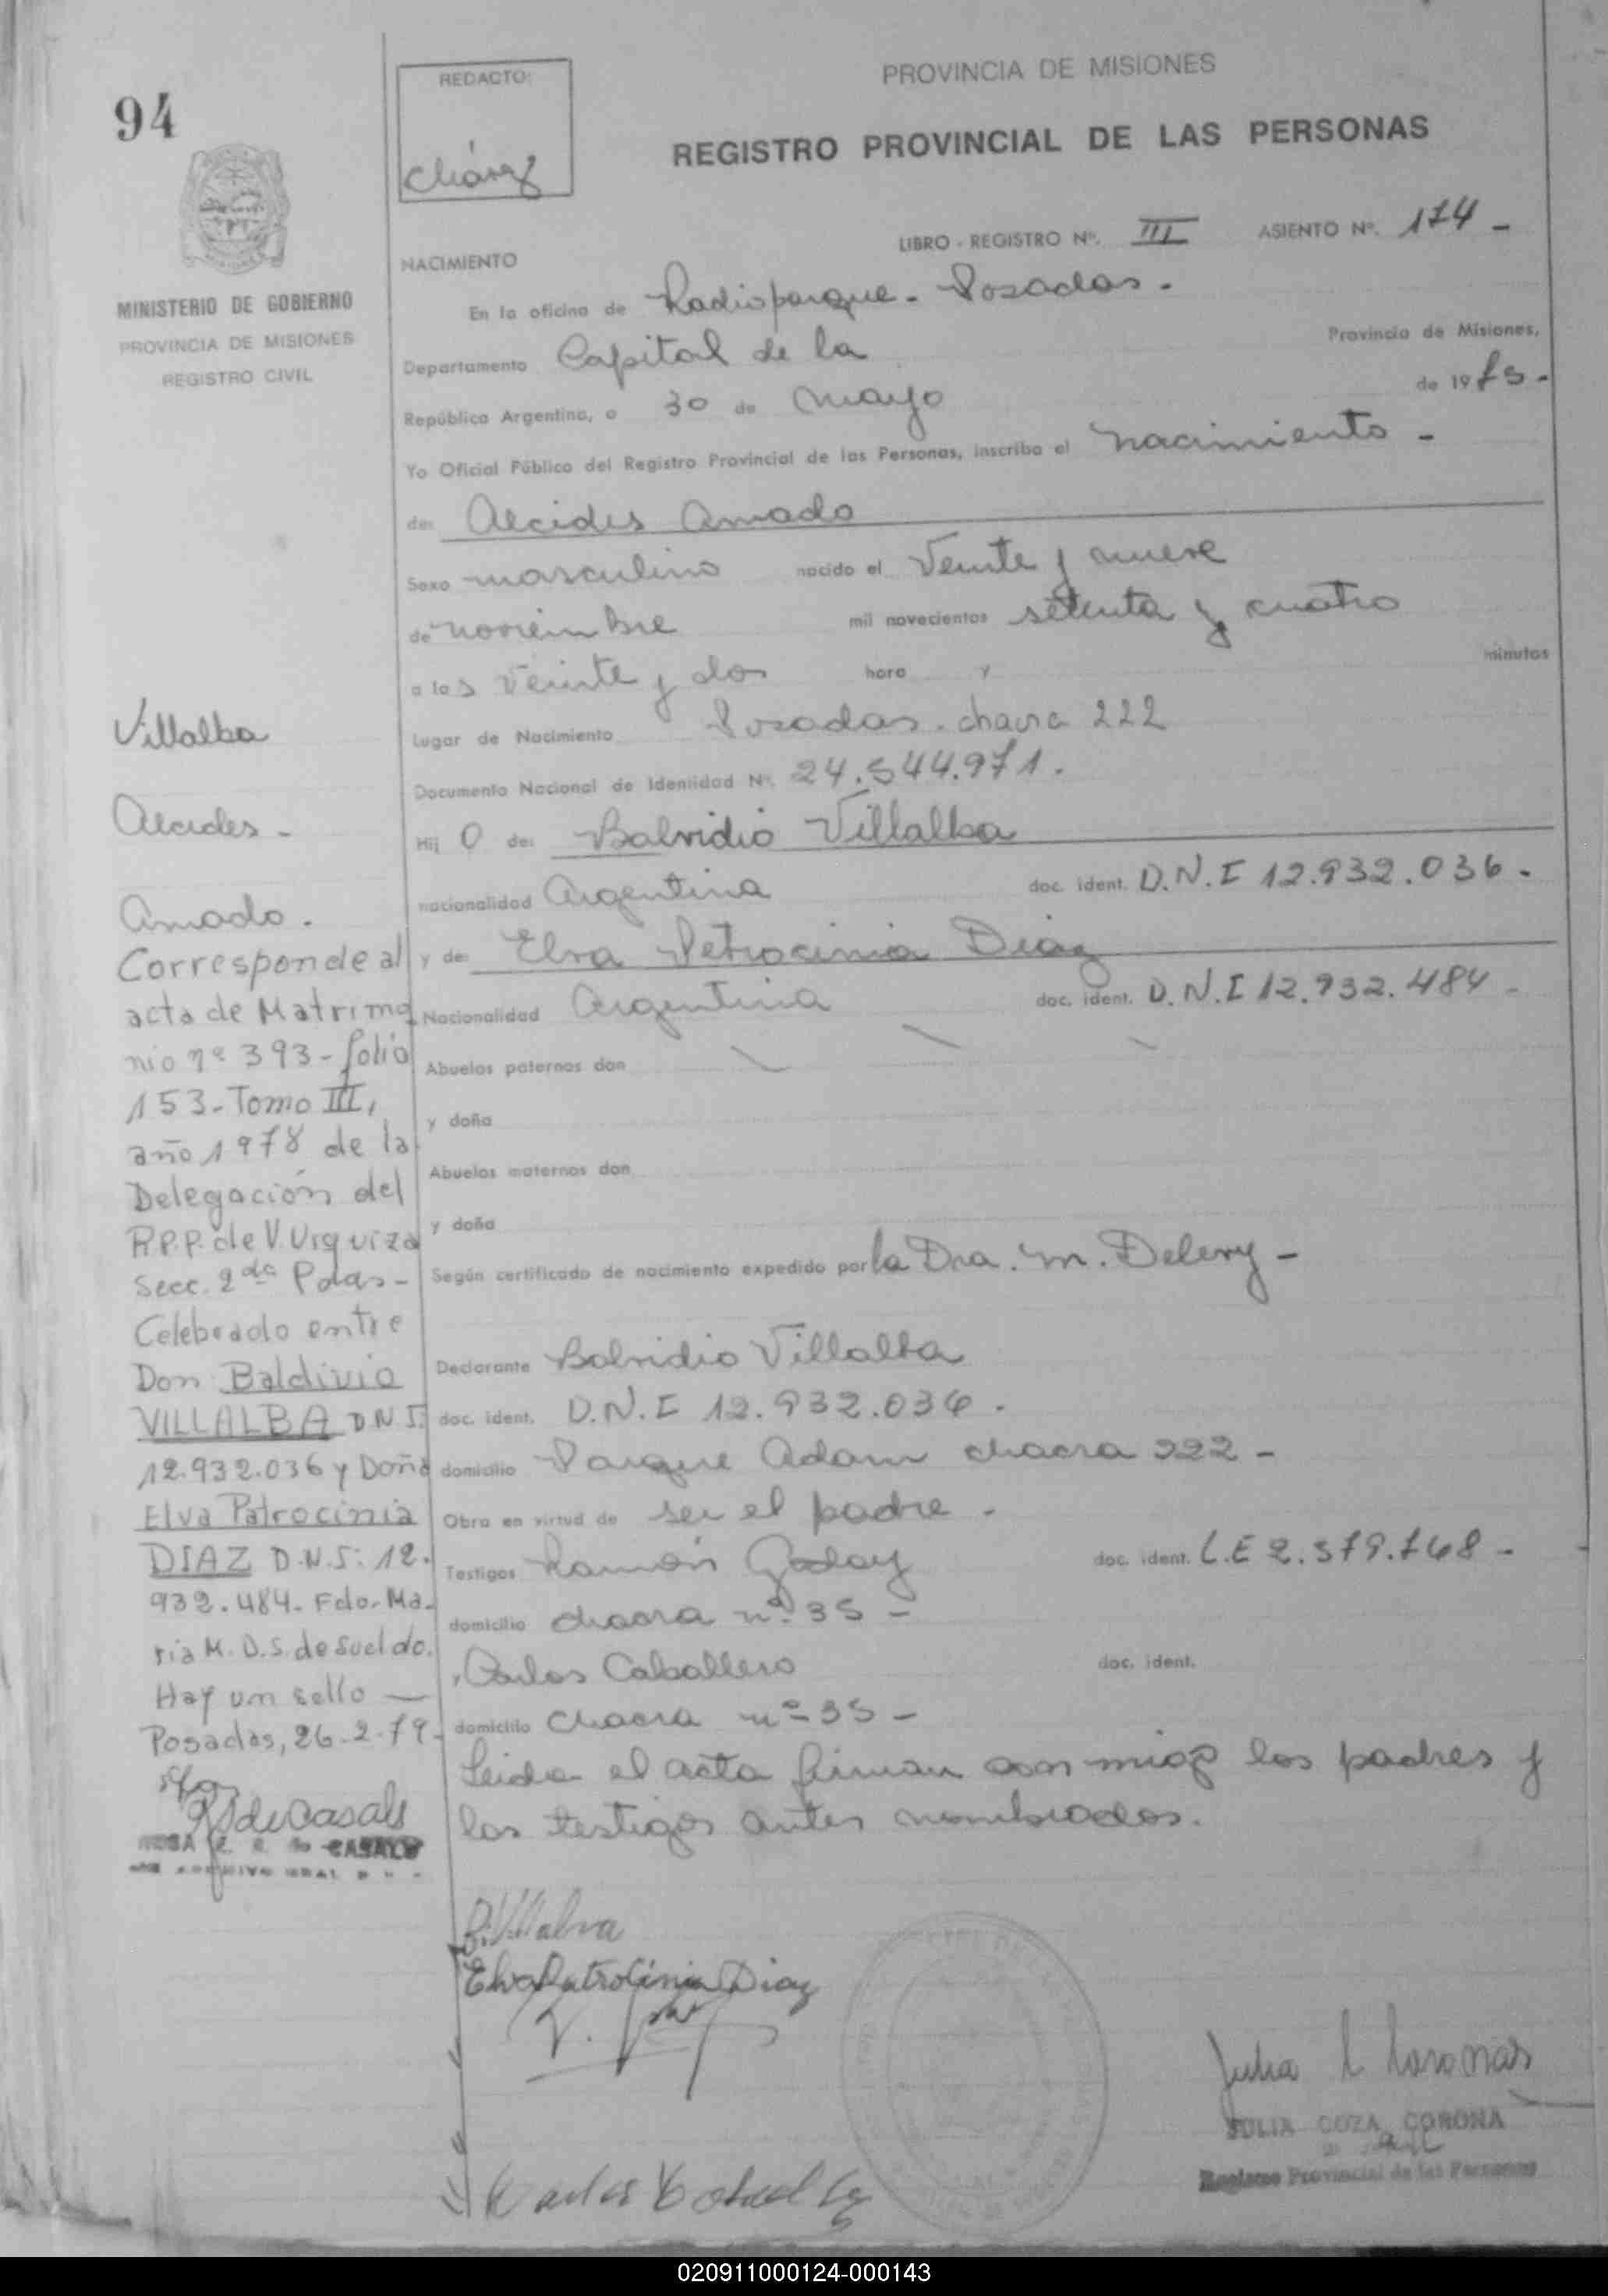 94
REDACTO:
Chávez
PROVINCIA DE MISIONES
REGISTRO PROVINCIAL DE LAS PERSONAS
LIBRO - REGISTRO Nº. III ASIENTO Nº. 174 -
MINISTERIO DE GOBIERNO
PROVINCIA DE MISIONES
REGISTRO CIVIL
NACIMIENTO
En la oficina de Radioparque - Posadas.
Departamento Capital de la Provincia de Misiones,
República Argentina, a 30 de Mayo de 1975 -
Yo Oficial Público del Registro Provincial de las Personas, inscribo el nacimiento -
de: Alcides Amado
Sexo masculino nacido el Veinte y nueve
de noviembre mil novecientos setenta y cuatro
a las veinte y dos hora y minutos
Lugar de Nacimiento Posadas - chacra 222
Documento Nacional de Identidad Nº. 24.544.971.
Hij O de: Balvidio Villalba
nacionalidad Argentina doc. ident. D.N.I 12.932.036 -
y de: Elva Petrocinia Diaz
Nacionalidad Argentina doc. ident. D.N.I 12.932.484 -
Abuelos paternos don
y doña
Abuelos maternos don
y doña
Según certificado de nacimiento expedido por la Dra. M. Delery -
Declarante Balvidio Villalba
doc. ident. D.N.I 12.932.036 .
domicilio Parque Adam chacra 222 -
Obra en virtud de ser el padre -
Testigos Ramón Godoy doc. ident. L.E 2.579.768 -
domicilio chacra nº 35 -
Carlos Caballero doc. ident.
domicilio Chacra nº 35 -
Leida el acta firman con migo los padres y
los testigos antes nombrados.
Villalba
Alcides -
Amado.
Corresponde al
acta de Matrimo
nio nº 393 - folio
153 - Tomo III,
año 1978 de la
Delegación del
R.P.P. de V. Urquiza
Secc. 2da Pdas -
Celebrado entre
Don Baldivio
VILLALBA D.N.I.
12.932.036 y Doña
Elva Patrocinia
DIAZ D.N.I: 12.
932.484. Fdo. Ma-
ria M. D. S. de Sueldo.
Hay un sello —
Posadas, 26-2-79-
R S de Casals
ROSA CASALS
B. Villalva
Elva Patrocinia Diaz
Carlos Caballero
JULIA COZA CORONA
Registro Provincial de las Personas
020911000124-000143